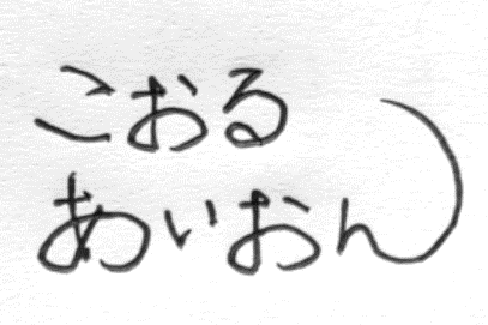 こおる
あいおん